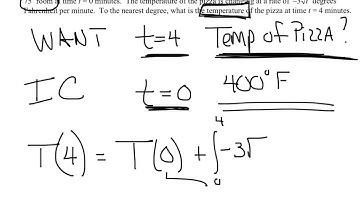 75° room at time t = 0 minutes. The temperature of the pizza is changing at a rate of −3√t degrees
Fahrenheit per minute. To the nearest degree, what is the temperature of the pizza at time t = 4 minutes.
WANT t=4 Temp of PizzA?
IC t=0 400°F
T(4) = T(0) + ∫₀⁴ −3√